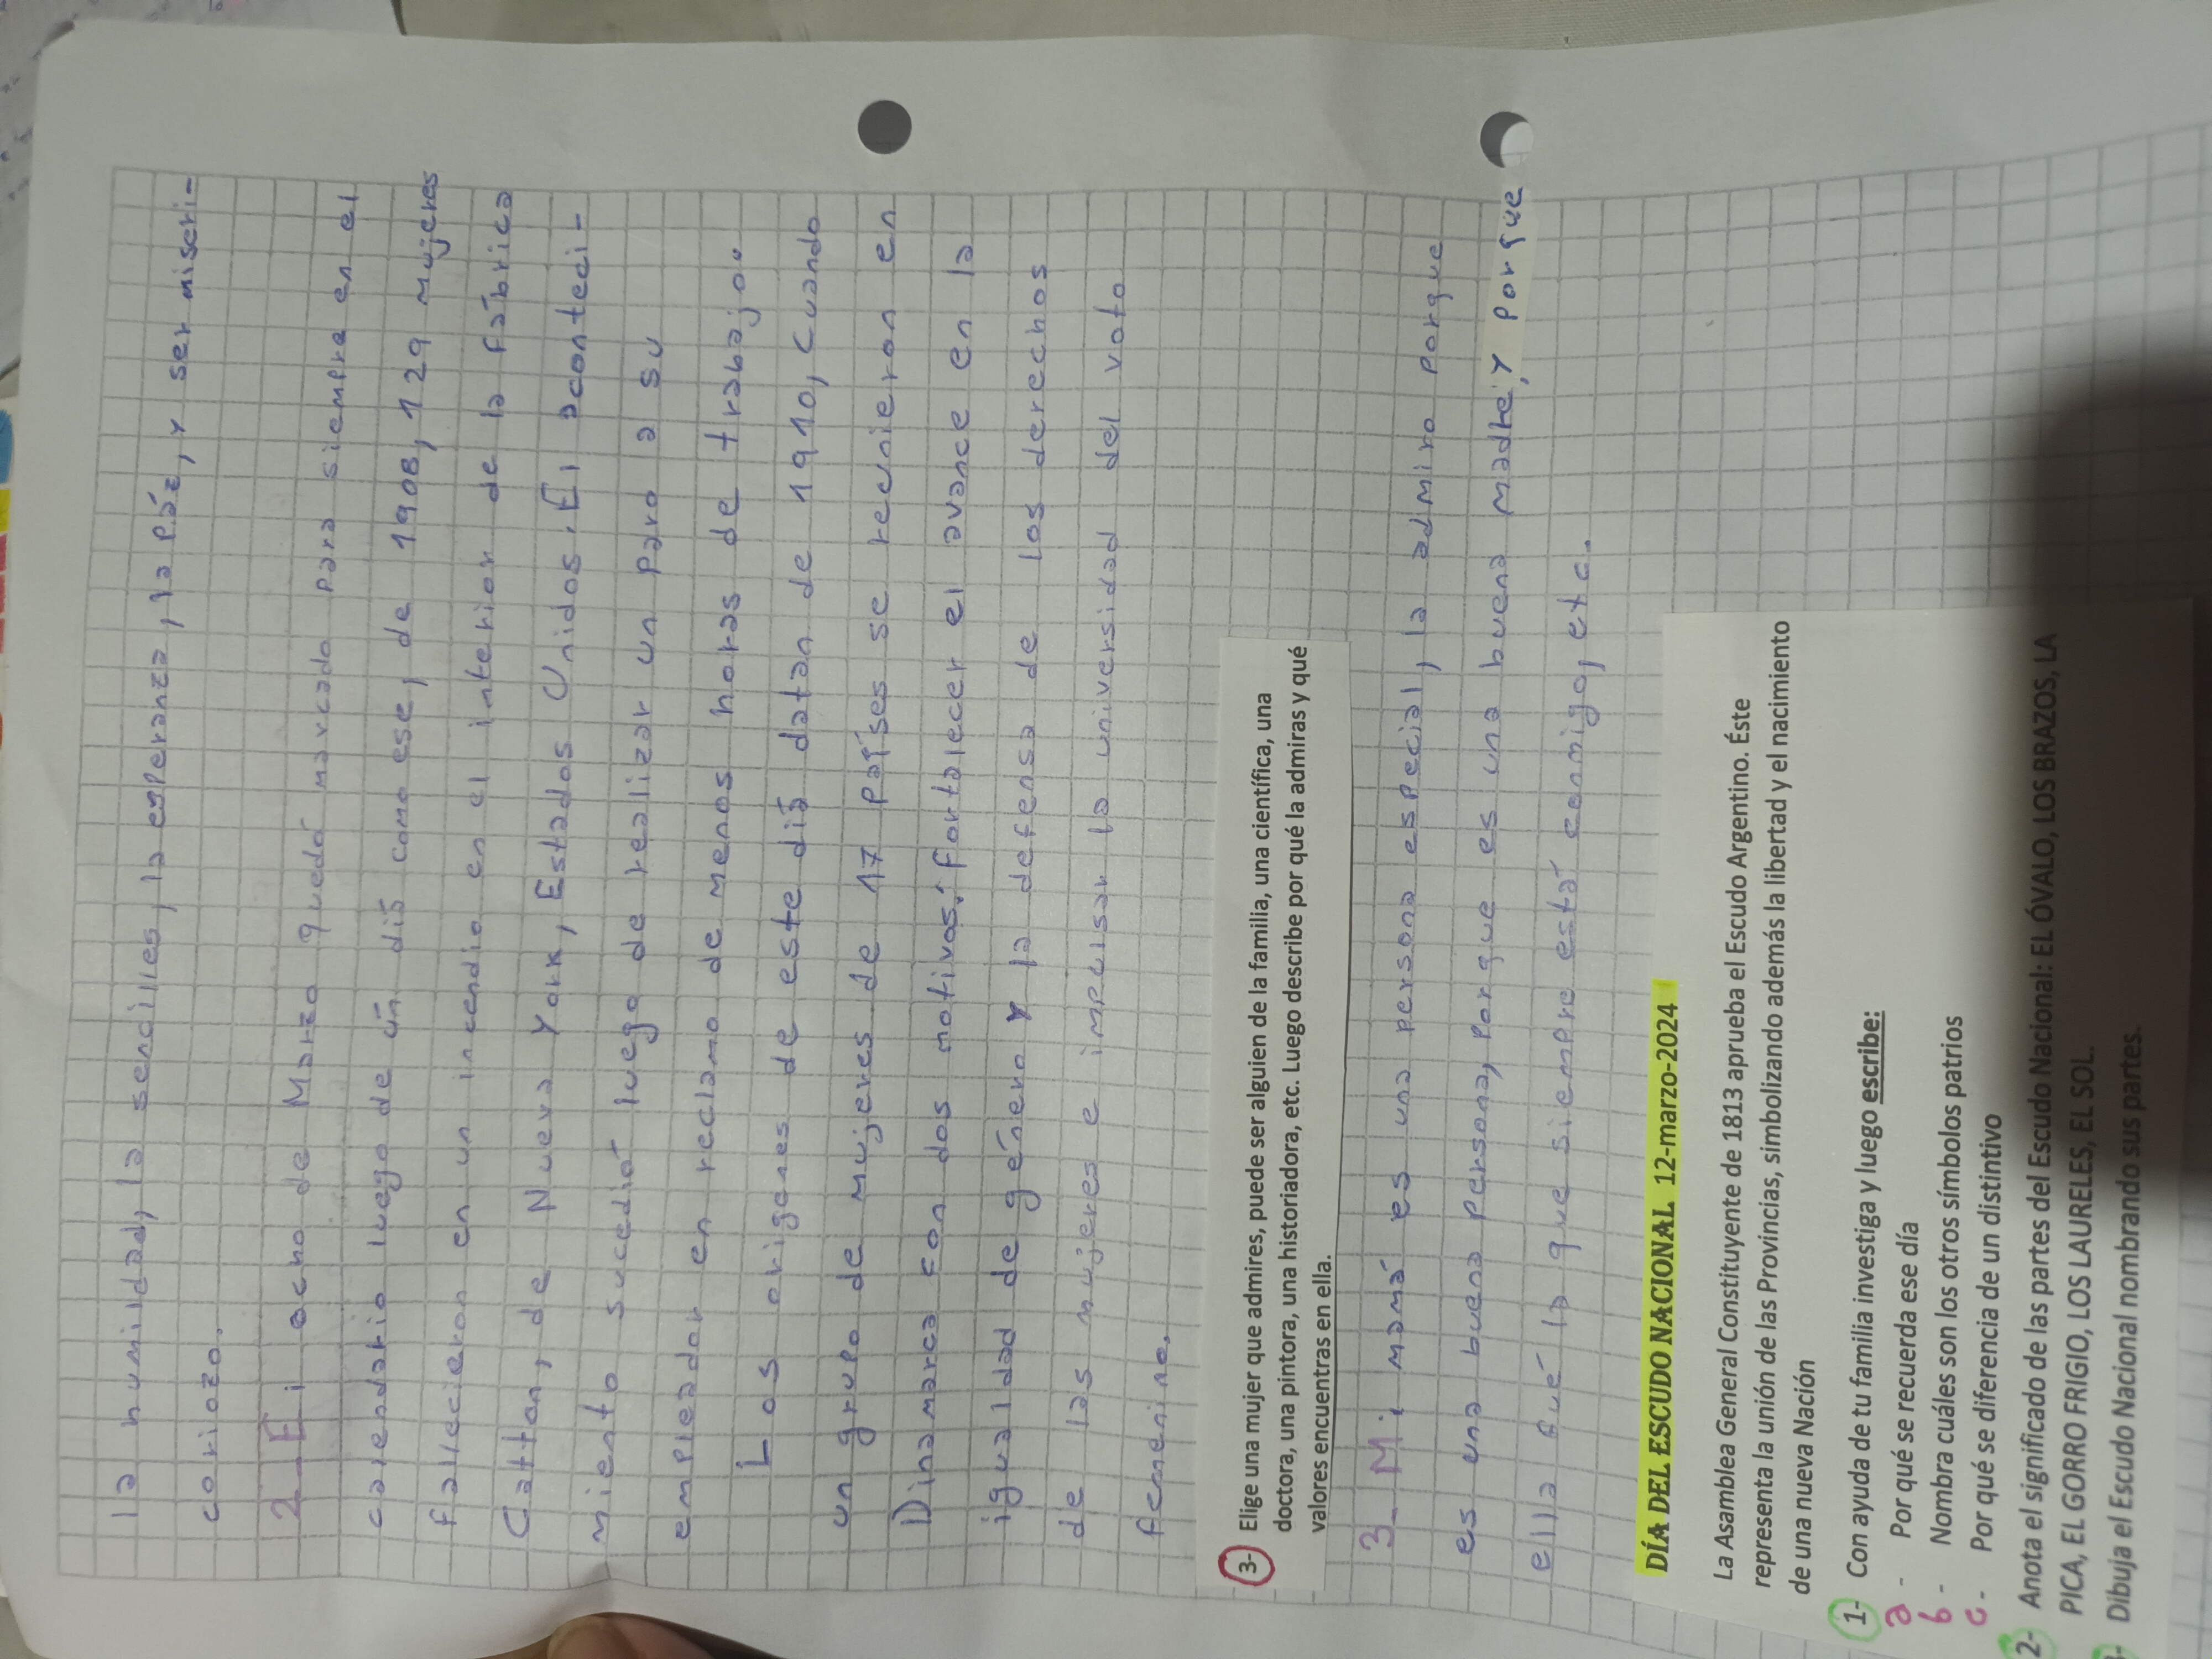 la humildad, la sencilles, la esperanza, la páz, y ser miseri-
coriozo.
2_ El ocho de Marzo quedó marcado para siempre en el
calendario luego de ún día como ese, de 1908, 129 mujeres
fallecieron en un incendio en el interior de la fábrica
Cattan, de Nueva York, Estados Unidos. El aconteci-
miento sucedió luego de realizar un paro a su
empleador en reclamo de menos horas de trabajo.
Los origenes de este día datan de 1910, cuando
un grupo de mujeres de 17 países se recunieron en
Dinamarca con dos motivos: fortalecer el avance en la
igualdad de género y la defensa de los derechos
de las mujeres e impulsar la universidad del voto
femenino.
3- Elige una mujer que admires, puede ser alguien de la familia, una científica, una
doctora, una pintora, una historiadora, etc. Luego describe por qué la admiras y qué
valores encuentras en ella.
3_ Mi mamá es una persona especial, la admiro porque
es una buena persona, porque es una buena madre, y porque
ella fué la que siempre está conmigo, etc.
DÍA DEL ESCUDO NACIONAL 12-marzo-2024
La Asamblea General Constituyente de 1813 aprueba el Escudo Argentino. Éste
representa la unión de las Provincias, simbolizando además la libertad y el nacimiento
de una nueva Nación
1- Con ayuda de tu familia investiga y luego escribe:
a - Por qué se recuerda ese día
b - Nombra cuáles son los otros símbolos patrios
c - Por qué se diferencia de un distintivo
2- Anota el significado de las partes del Escudo Nacional: EL ÓVALO, LOS BRAZOS, LA
PICA, EL GORRO FRIGIO, LOS LAURELES, EL SOL.
3- Dibuja el Escudo Nacional nombrando sus partes.